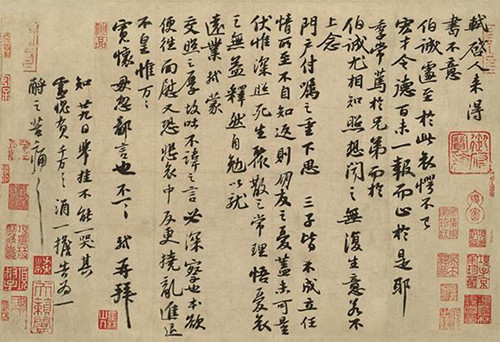 軾啓人來得
書不意
伯誠遽至於此哀愕不已
宏才令德百未一報而止於是耶
季常篤於兄弟而於
伯誠尤相知照想聞之無復生意若不
上念
門戶付囑之重下思三子皆不成立任
情所至不自知返則朋友之憂蓋未可量
伏惟深照死生聚散之常理悟憂哀
之無益釋然自勉以就
遠業軾蒙
交照之厚故吐不諱之言必深察也本欲
便往面慰又恐悲哀中反更撓亂進退
不皇惟万万
寬懷毋忽鄙言也不一一軾再拜
知廿九日舉掛不能一哭其
靈愧負千万千万酒一擔告為一
酹之苦痛苦痛